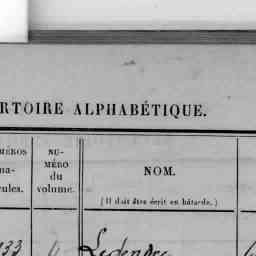 RTOIRE ALPHABÉTIQUE.
MÉROS
ma-
cules.
NU-
MÉRO
du
volume.
NOM.
(Il doit être écrit en bâtarde.)
133